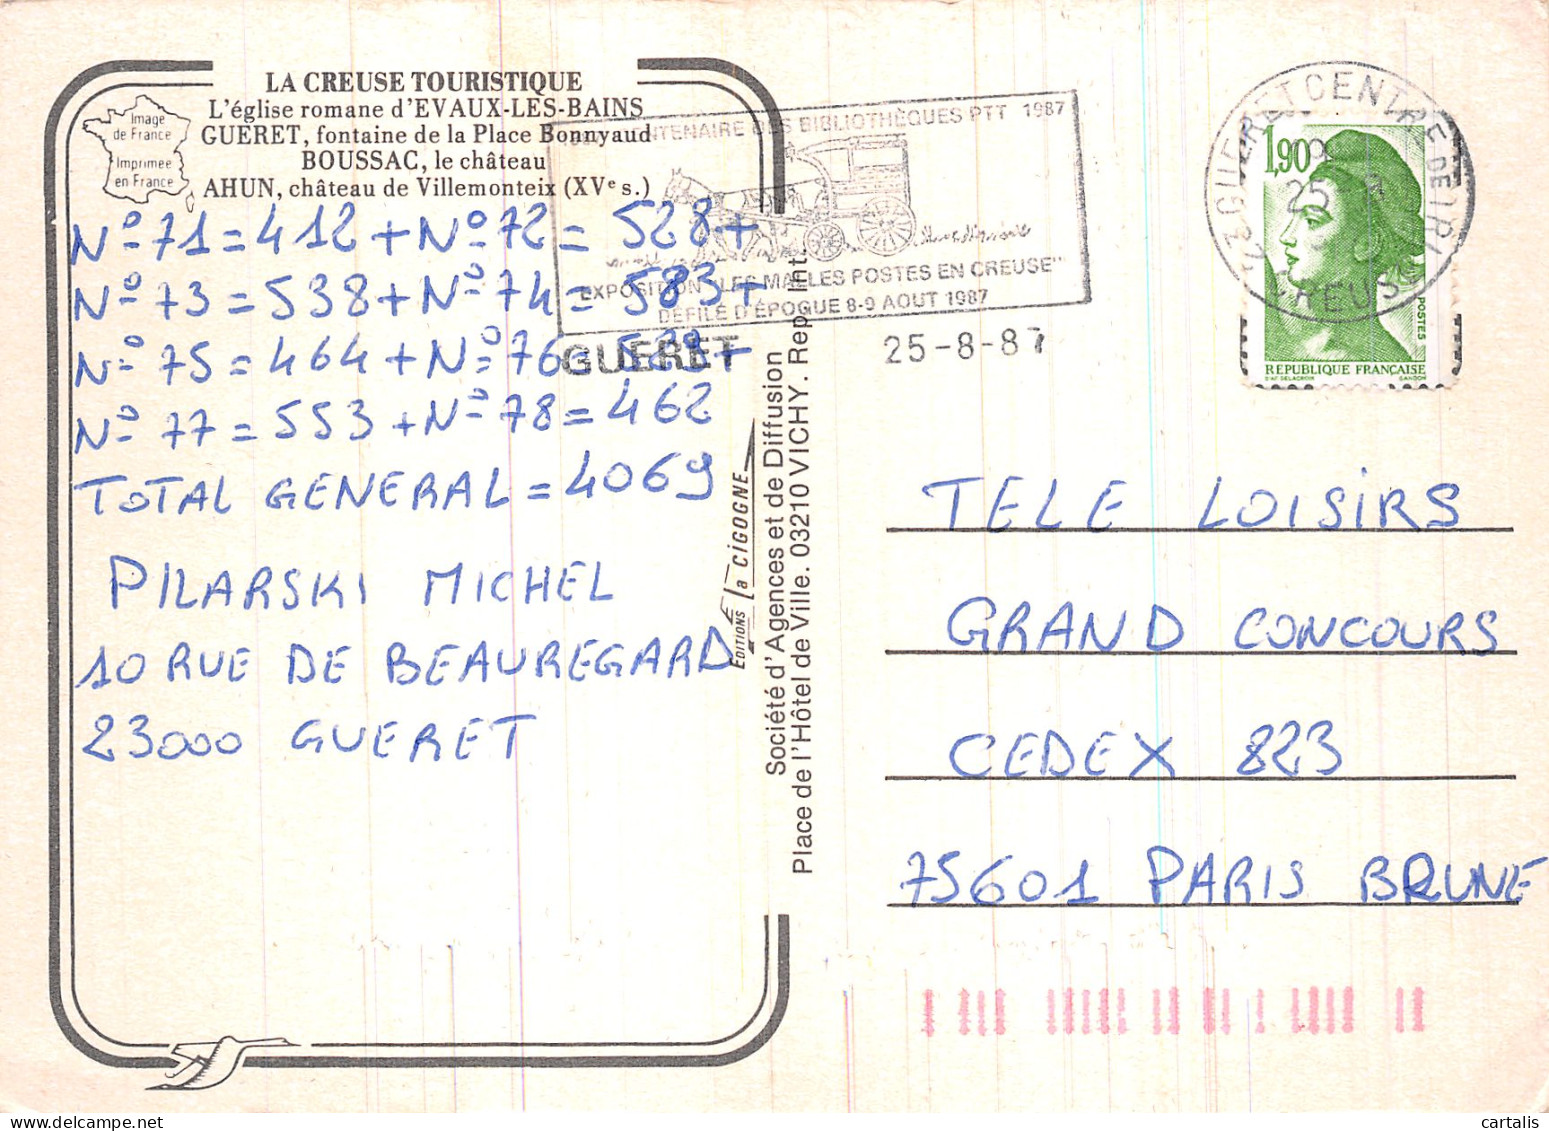 LA CREUSE TOURISTIQUE
L'église romane d'EVAUX-LES-BAINS
GUERET, fontaine de la Place Bonnyaud
BOUSSAC, le château
AHUN, château de Villemonteix (XVe s.)
Image
de France
Imprimée
en France
N° 71 = 412 + N° 72 = 528 +
N° 73 = 538 + N° 74 = 583 +
N° 75 = 464 + N° 76 = 529 +
N° 77 = 553 + N° 78 = 462
TOTAL GENERAL = 4069
PILARSKI MICHEL
10 RUE DE BEAUREGARD
23000 GUERET
CENTENAIRE DES BIBLIOTHÈQUES PTT 1987
EXPOSITION "LES MALLES POSTES EN CREUSE"
DÉFILÉ D'ÉPOQUE 8-9 AOUT 1987
GUERET
25-8-87
23 GUERET CENTRE DE TRI
CREUSE
25
1,90
POSTES
REPUBLIQUE FRANÇAISE
D'AP. DELACROIX GANDON
EDITIONS la CIGOGNE
Société d'Agences et de Diffusion
Place de l'Hôtel de Ville. 03210 VICHY. Rep. Int.
TELE LOISIRS
GRAND CONCOURS
CEDEX 823
75601 PARIS BRUNE
cartalis